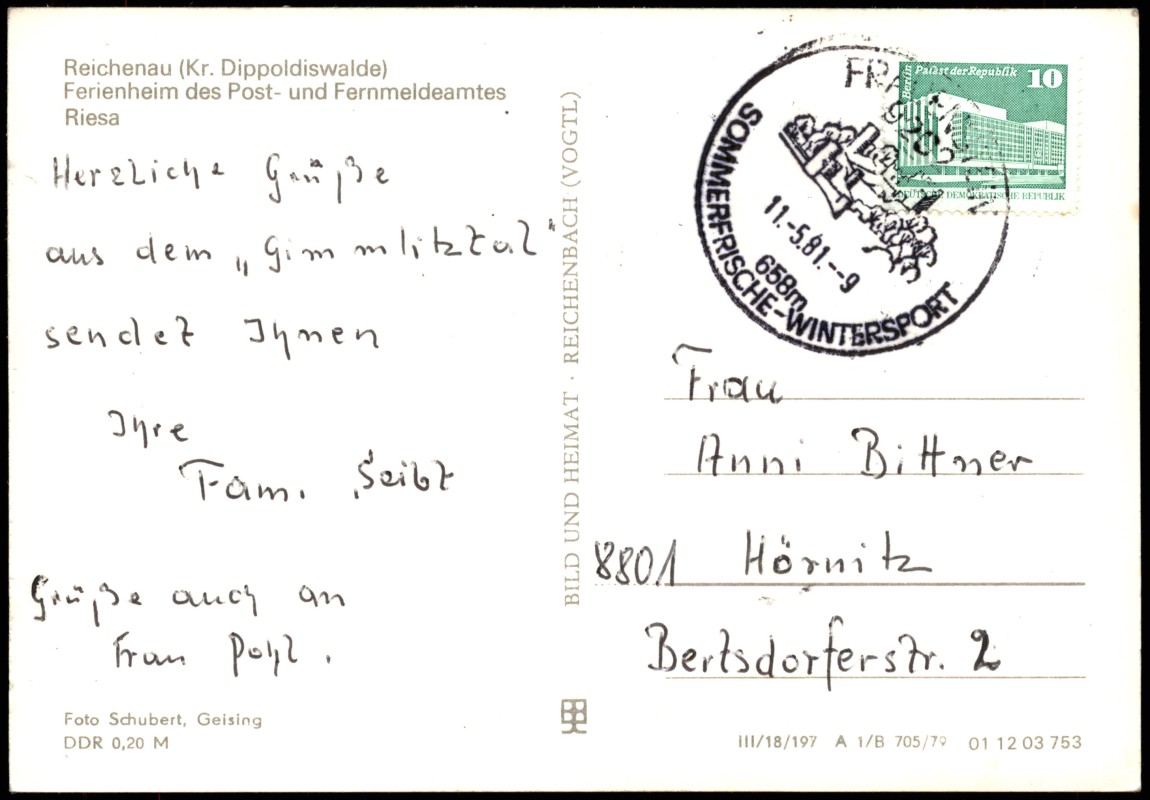 Reichenau (Kr. Dippoldiswalde)
Ferienheim des Post- und Fernmeldeamtes
Riesa
Herzliche Grüße
aus dem „Gimmlitztal"
sendet Ihnen
Ihre
Fam. Seibt
Grüße auch an
Frau Pohl.
Foto Schubert, Geising
DDR 0,20 M
BILD UND HEIMAT · REICHENBACH (VOGTL)
Berlin
Palast der Republik
10
DEUTSCHE DEMOKRATISCHE REPUBLIK
9202
SOMMERFRISCHE-WINTERSPORT
11.-5.81.--9
658m
Frau
Anni Bittner
8801 Hörnitz
Bertsdorferstr. 2
III/18/197 A 1/B 705/79 01 12 03 753